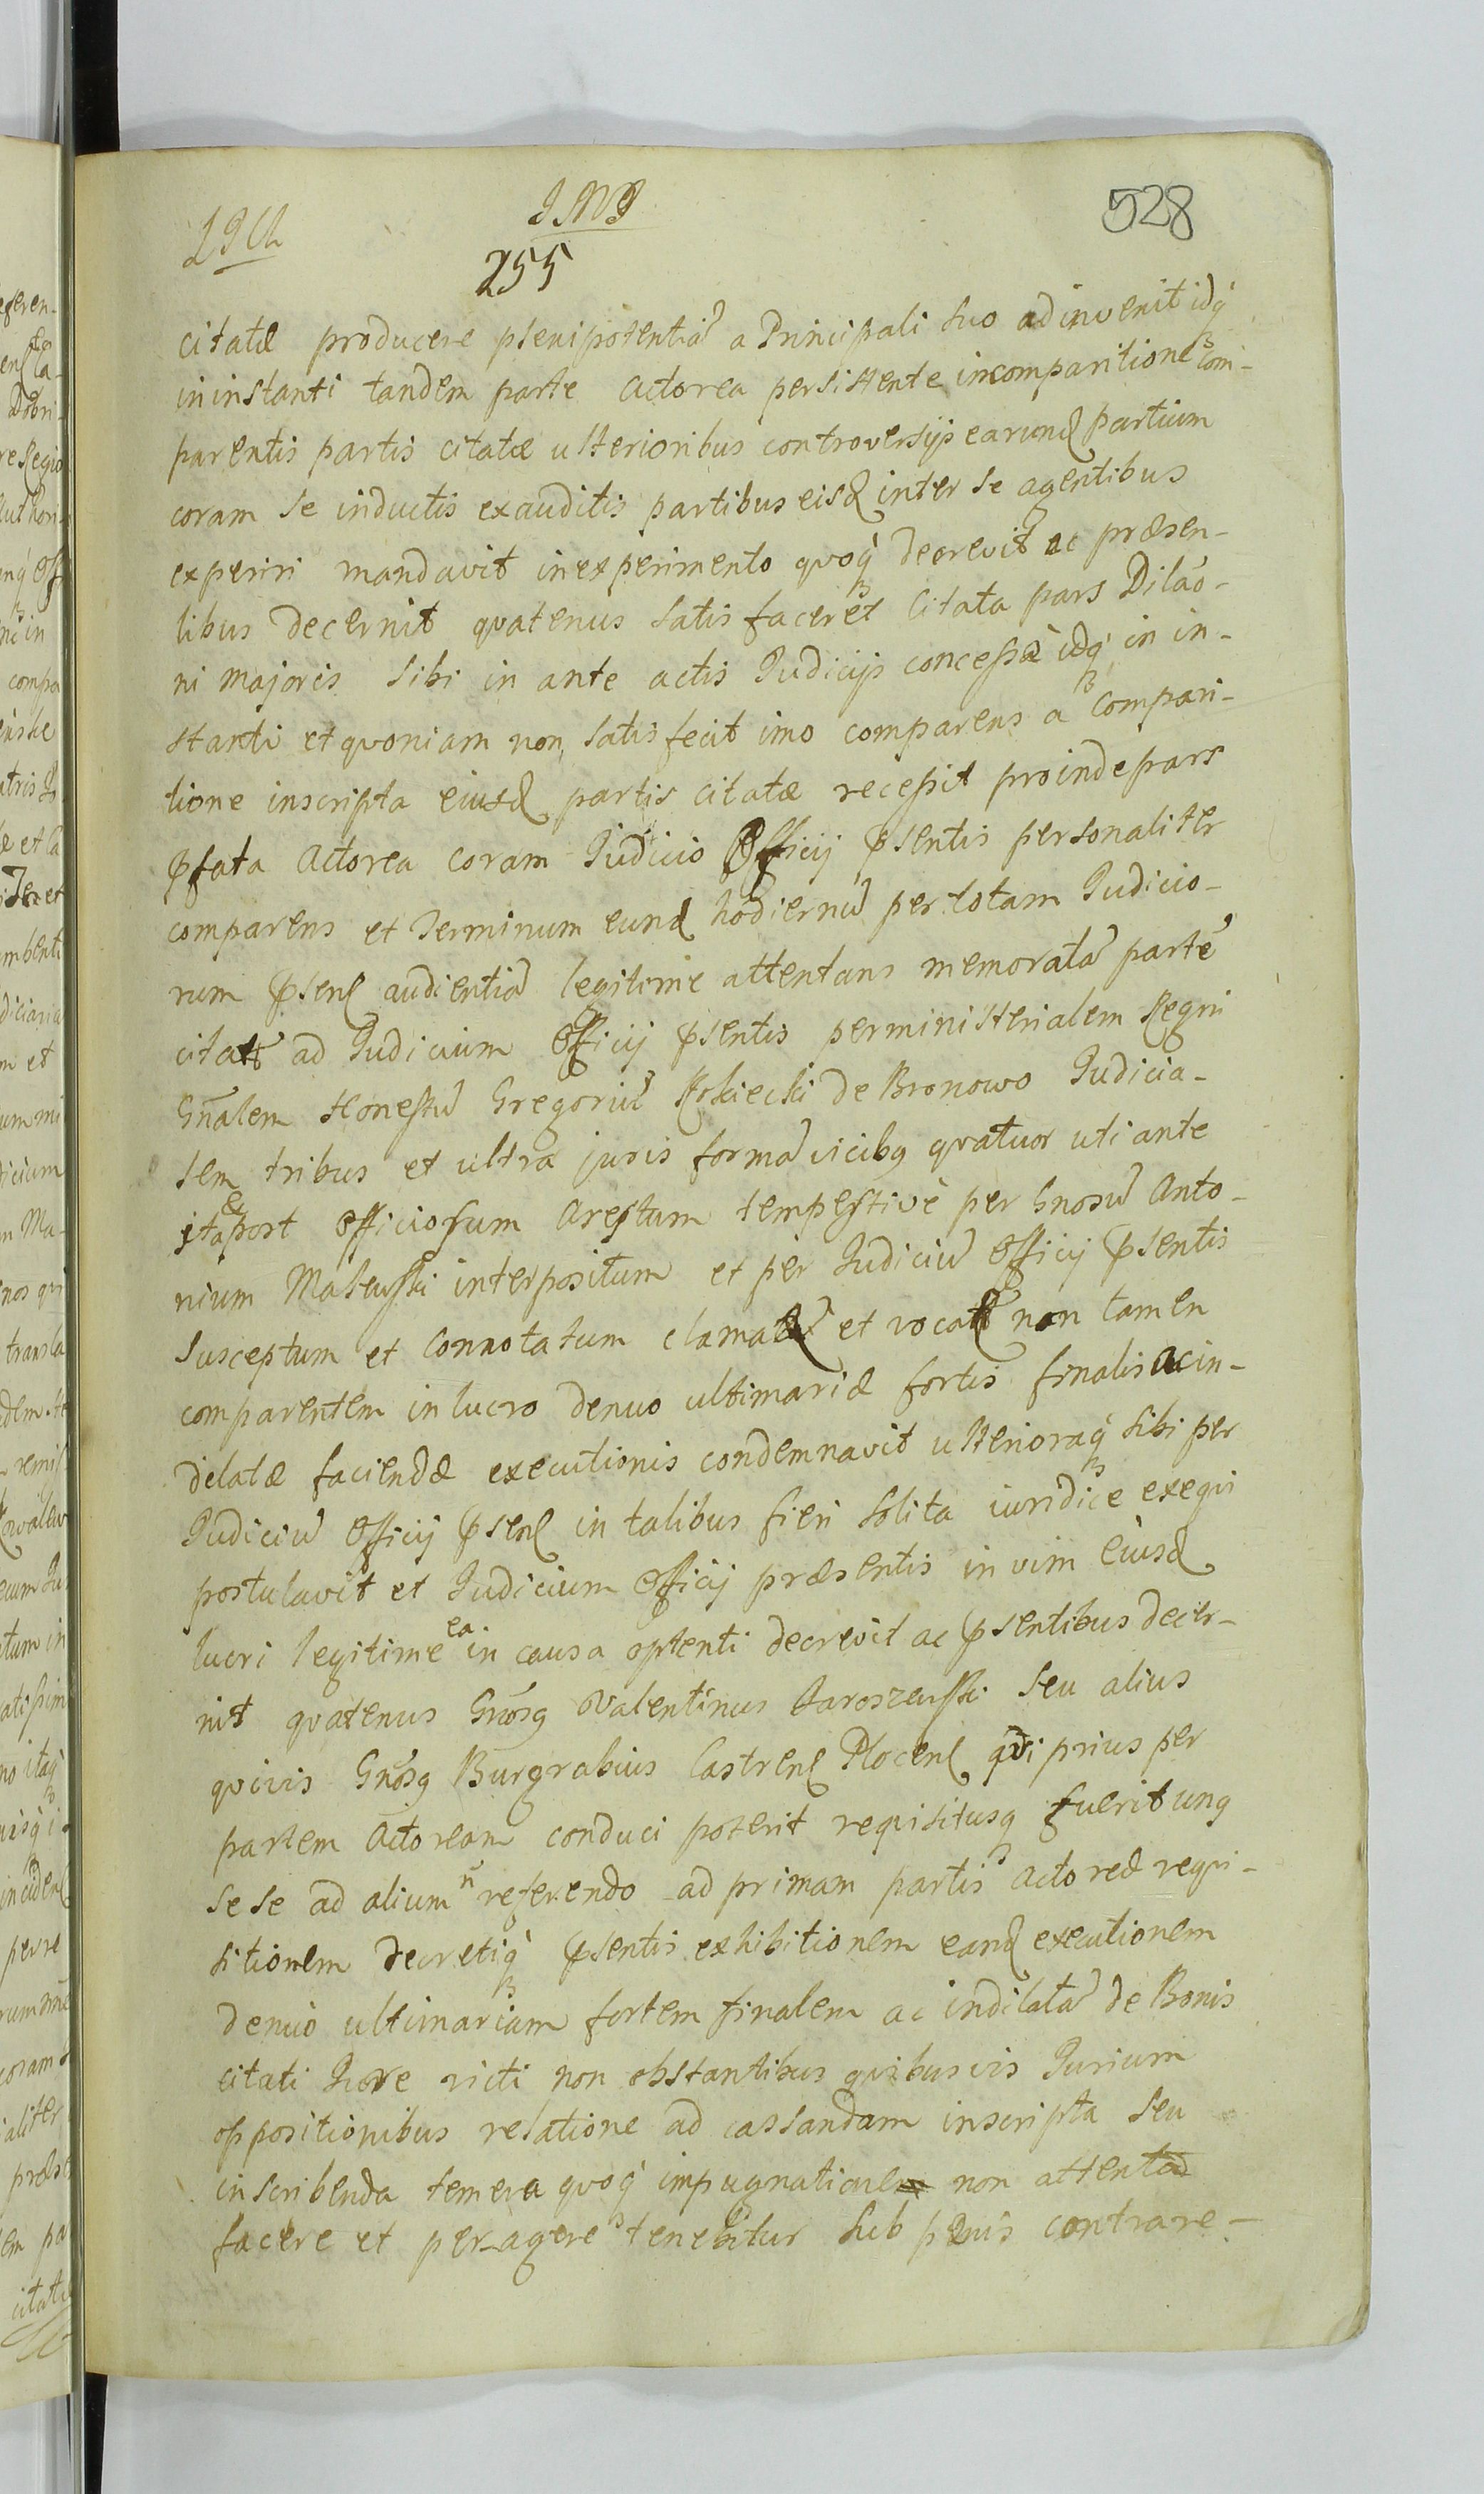 528
255
citatæ producere plenipotentiã a Principali suo adinvenit idq̃
in instanti tandem parte Actorea persistente in comparitione com-
parentis partis citatæ ulterioribus controversijs earund partium
coram se inductis exauditis partibus eisd inter se agentibus
experiri mandavit in experimento qvoq̃ decrevit ac præsen-
tibus decernit qvatenus satis faceret Citata pars Dilaõ-
ni majoris sibi in ante actis Judicijs concessæ idq̃ in in-
stanti et qvoniam non satis fecit imo comparens a compari-
tione inscripta eiusd partis citatæ recessit proinde pars
pfata Actorea coram Judicio Officij psentis personaliter
comparens et Terminum eund hodiernũ per totam Judicio-
rum psen audientiã legitime attentans memoratã partẽ
citatã ad Judicium Officij psentis per ministerialem Regni
Gñalem Honestũ Gregoriũ Rokiecki de Bronowo Judicia-
tem tribus et ultra juris formã vicibg qvatuor uti ante
ita & post Officiosum Arestum tempestivè per Gnosũ Anto-
nium Mastuski interpositum et per Judiciũ Officij psentis
susceptum et Connotatum clamatã et vocatã non tamen
comparentem in lucro denuo ultimariæ fortis finalis ac in-
dilatæ faciendæ executionis condemnavit ulterioraq̃ sibi per
Judiciũ Officij psen in talibus fieri solita iuridice exeqvi
postulavit et Judicium Officij præsentis in vim eiusd
lucri legitime ea in causa optenti decrevit ac psentibus decer-
nit qvatenus Gnõsg Valentinus Jaroszewski seu alius
qvivis Gnõsg Burgrabius Castren Plocen qvi prius per
partem Actoream conduci poterit reqvisitusg fuerit ung
se se ad alium ñ referendo ad primam partis actoreæ reqvi-
sitionem decretiq̃ psentis exhibitionem eand executionem
denuo ultimariam fortem finalem ac indilatã de Bonis
citati Jure victi non obstantibus qvibusvis Jurium
oppositionibus relatione ad cassandam inscripta seu
inscribenda temera qvoq̃ impugnatione non attenta
facere et peragere tenebitur sub pænis contra re-